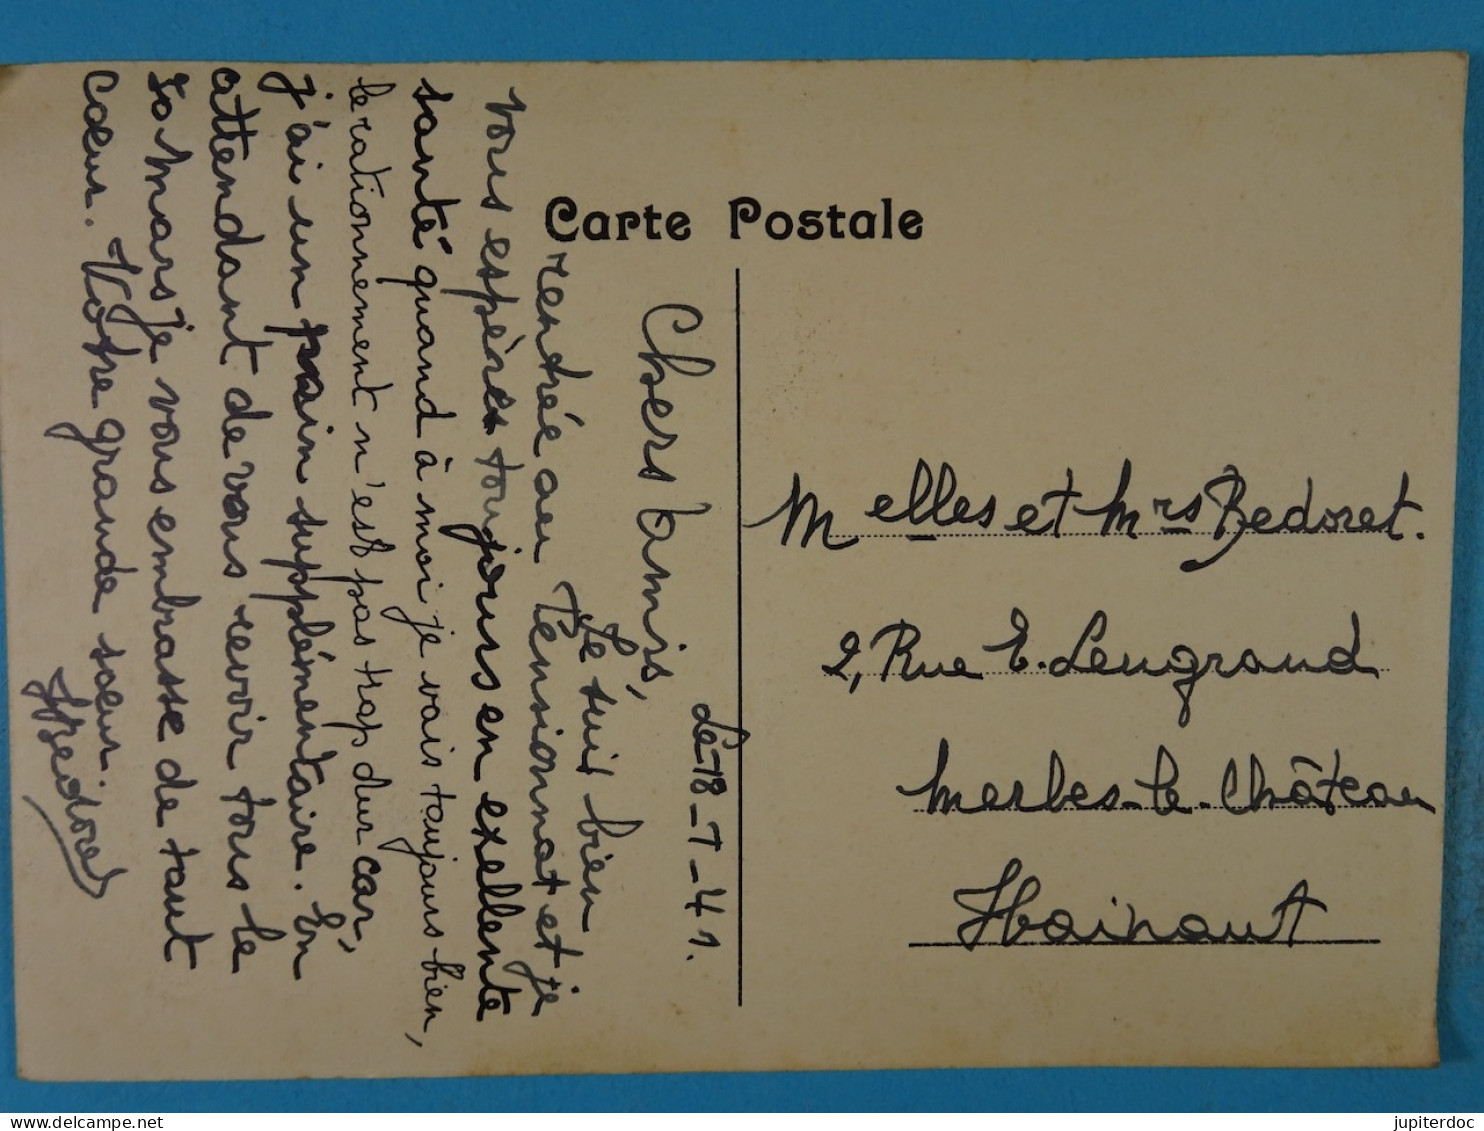 Carte Postale
le 18-1-41.
Chers amis,
Je suis bien
rentrée au Pensionnat et je
vous espères toujours en exellente
santé quand à moi je vais toujours bien,
le rationnement n'est pas trop dur car,
j'ai un pain supplémentaire. En
attendant de vous revoir tous le
30 Mars je vous embrasse de tout
cœur. Votre grande sœur.
Melles et Mrs Bedoret.
2, Rue E. Leugrand
Merbes-le-Château
Hainaut
jupiterdoc